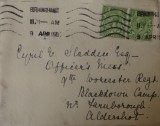 9 APR
Cyril E. Sladden Esq.
Officer's Mess.
9th Worcester Regt.
Blackdown Camp
Nr Farnborough
Aldershot